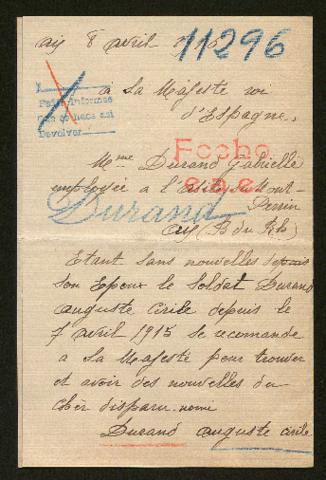 aix 8 avril
11296
à Sa Majesté roi
d'Espagne.
Pedir informes
Devolver
Fecho
Mme Durand Gabrielle
employée a l'Asile
Perrin
Durand
aix (B du Rh)
Etant sans nouvelles depuis
son Epoux le Soldat Durand
auguste Cirile depuis le
7 avril 1915 se recomande
a Sa Majesté pour trouver
et avoir des nouvelles du
chèr disparu nomé
Durand auguste cirile